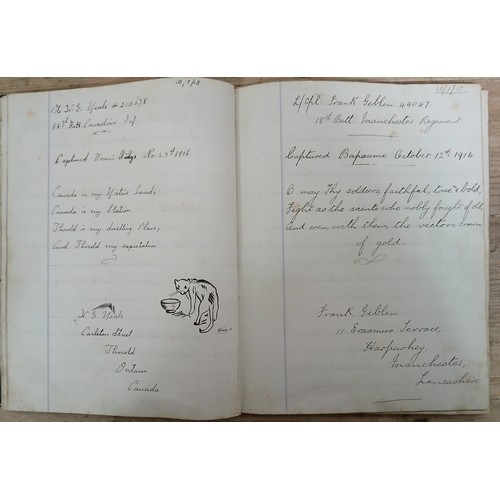 10/1/18
Pte W. G.
Canadian Inf
Captured Nov 27th 1916
Canada is my Native Land,
Canada is my Station
Thorold is my dwelling Place,
And Thorold my expectation
W. G.
Carleton Street
Thorold
Ontario
Canada
L/Cpl. Frank Geblen 44047
18th Batt. Manchester Regiment
Captured Bapaume October 12th 1916
O may Thy soldiers, faithful, true & bold,
Fight as the saints who nobly fought of old
And win, with them, the victors crown
of gold.
Frank Geblen
11, Erasmus Terrace,
Harpurhey,
Manchester,
Lancashire